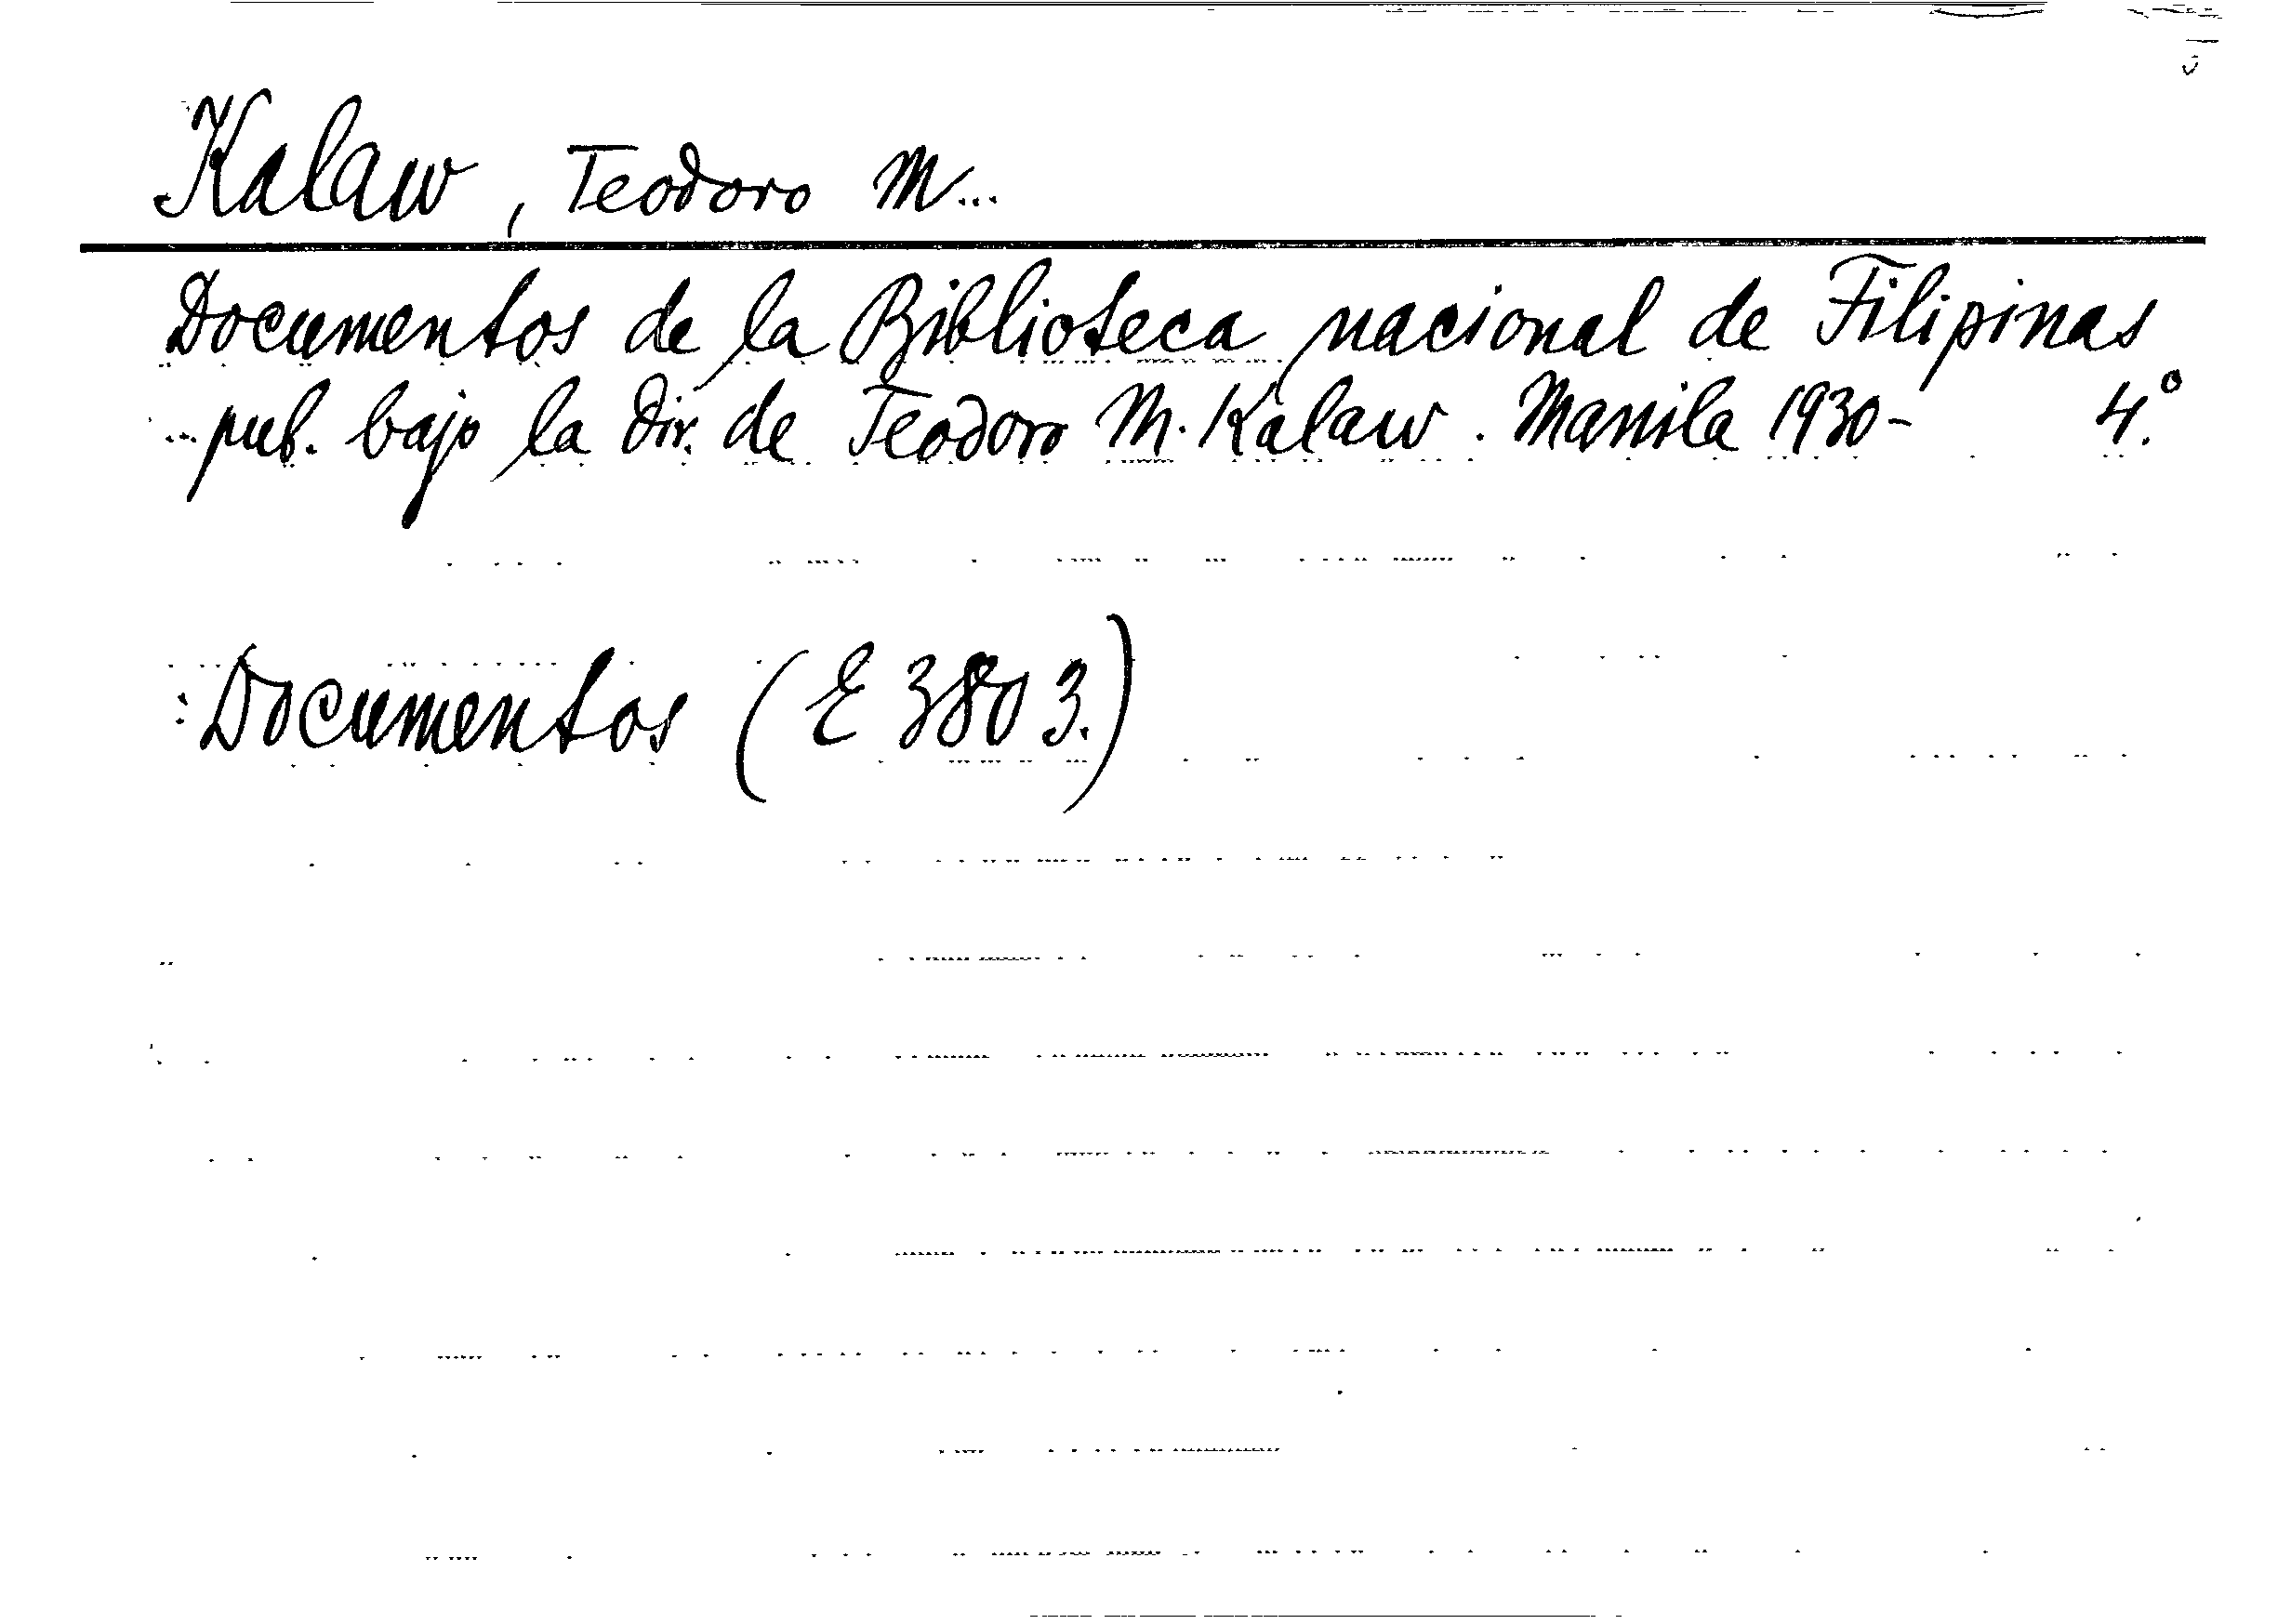 Kalaw, Teodoro M...
Documentos de la Biblioteca nacional de Filipinas
pub. bajo la dir. de Teodoro M. Kalaw. Manila 1930- 4.º
: Documentos (E 3803.)